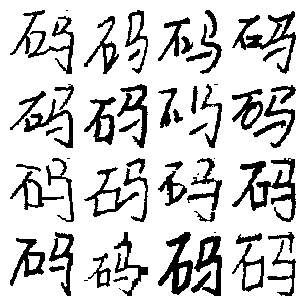 码码码码
码码码码
码码码码
码码码码